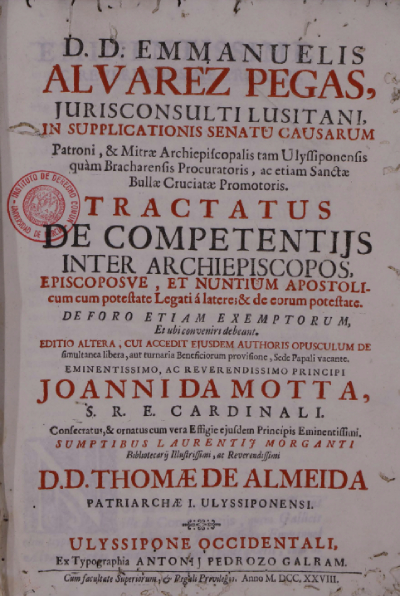 D. D. EMMANUELIS
ALVAREZ PEGAS,
JURISCONSULTI LUSITANI,
IN SUPPLICATIONIS SENATU CAUSARUM
Patroni, & Mitræ Archiepiscopalis tam Ulyssiponensis
quàm Bracharensis Procuratoris, ac etiam Sanctæ
Bullæ Cruciatæ Promotoris.
TRACTATUS
DE COMPETENTIJS
INTER ARCHIEPISCOPOS,
EPISCOPOSVE, ET NUNTIUM APOSTOLI-
cum cum potestate Legati á latere; & de eorum potestate.
DE FORO ETIAM EXEMPTORUM,
Et ubi conveniri debeant.
EDITIO ALTERA, CUI ACCEDIT EJUSDEM AUTHORIS OPUSCULUM DE
simultanea libera, aut turnaria Beneficiorum provisione, Sede Papali vacante.
EMINENTISSIMO, AC REVERENDISSIMO PRINCIPI
JOANNI DA MOTTA,
S. R. E. CARDINALI.
Consectatus, & ornatus cum vera Effigie ejusdem Principis Eminentissimi.
SUMPTIBUS LAURENTIJ MORGANTI
Bibliotecarij Illustrissimi, ac Reverendissimi
D. D. THOMÆ DE ALMEIDA
PATRIARCHÆ I. ULYSSIPONENSI.
ULYSSIPONE OCCIDENTALI,
Ex Typographia ANTONIJ PEDROZO GALRAM.
Cum facultate Superiorum, & Regali Privilegio. Anno M. DCC. XXVIII.
INSTITUTO DE DERECHO COMUN